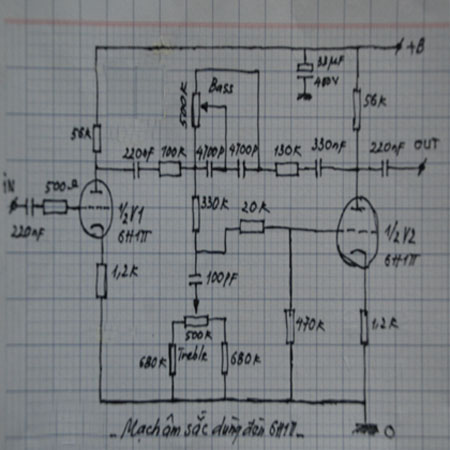 +B
33µF
400V
Bass
500K
56K
56K
220nF
100K
4700p
4700p
130K
330nF
220nF
OUT
iN
500Ω
220nF
1/2V1
6H1Π
330K
20K
1/2V2
6H1Π
1,2K
100pF
500K
Treble
680K
680K
470K
1.2K
Mạch âm sắc dùng đèn 6H1Π
0